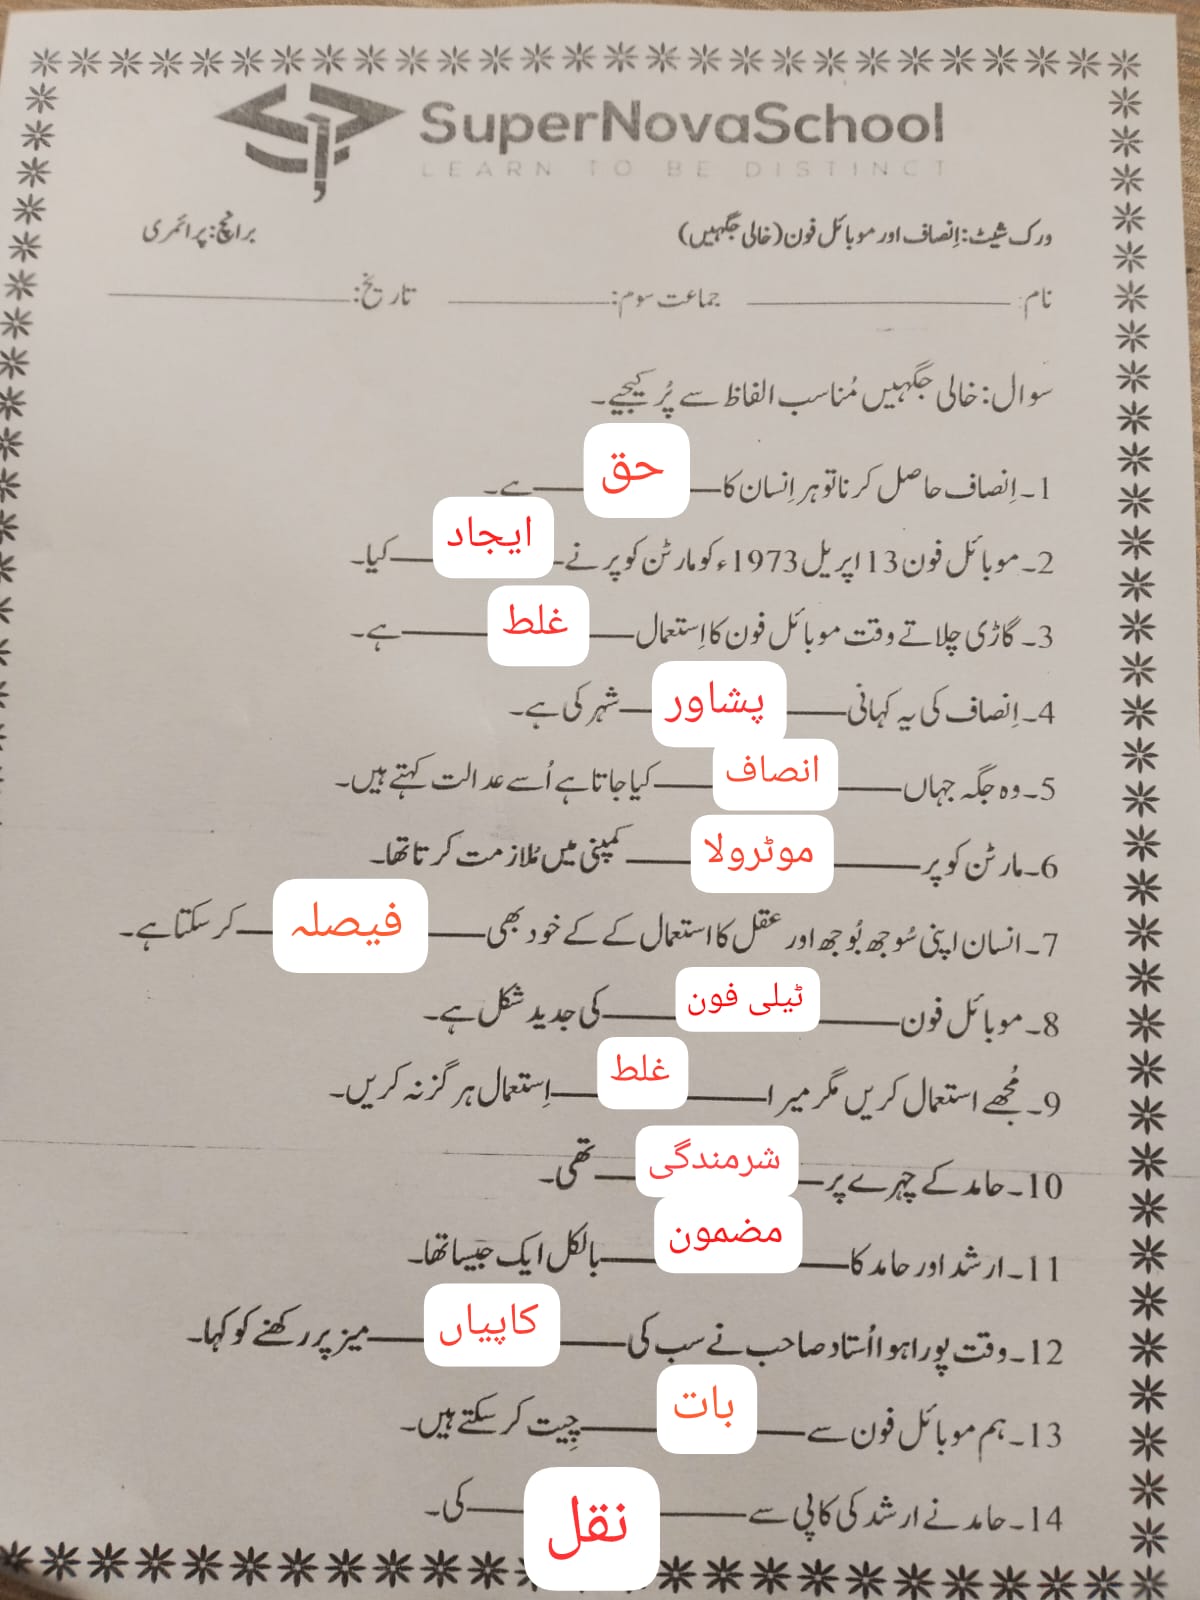 SuperNovaSchool
LEARN TO BE DISTINCT
ورک شیٹ: اِنصاف اور موبائل فون (خالی جگہیں) برانچ: پرائمری
نام: جماعت سوم: تاریخ:
سوال: خالی جگہیں مُناسب الفاظ سے پُر کیجیے۔
1۔ اِنصاف حاصل کرنا تو ہر اِنسان کا حق ہے۔
2۔ موبائل فون 13 اپریل 1973ء کو مارٹن کوپر نے ایجاد کیا۔
3۔ گاڑی چلاتے وقت موبائل فون کا اِستعمال غلط ہے۔
4۔ اِنصاف کی یہ کہانی پشاور شہر کی ہے۔
5۔ وہ جگہ جہاں انصاف کیا جاتا ہے اُسے عدالت کہتے ہیں۔
6۔ مارٹن کوپر موٹرولا کمپنی میں مُلازمت کرتا تھا۔
7۔ انسان اپنی سُوجھ بُوجھ اور عقل کا استعمال کے کے خود بھی فیصلہ کر سکتا ہے۔
8۔ موبائل فون ٹیلی فون کی جدید شکل ہے۔
9۔ مُجھے استعمال کریں مگر میرا غلط اِستعمال ہرگز نہ کریں۔
10۔ حامد کے چہرے پر شرمندگی تھی۔
11۔ ارشد اور حامد کا مضمون بالکل ایک جیسا تھا۔
12۔ وقت پورا ہوا اُستاد صاحب نے سب کی کاپیاں میز پر رکھنے کو کہا۔
13۔ ہم موبائل فون سے بات چِیت کر سکتے ہیں۔
14۔ حامد نے ارشد کی کاپی سے نقل کی۔